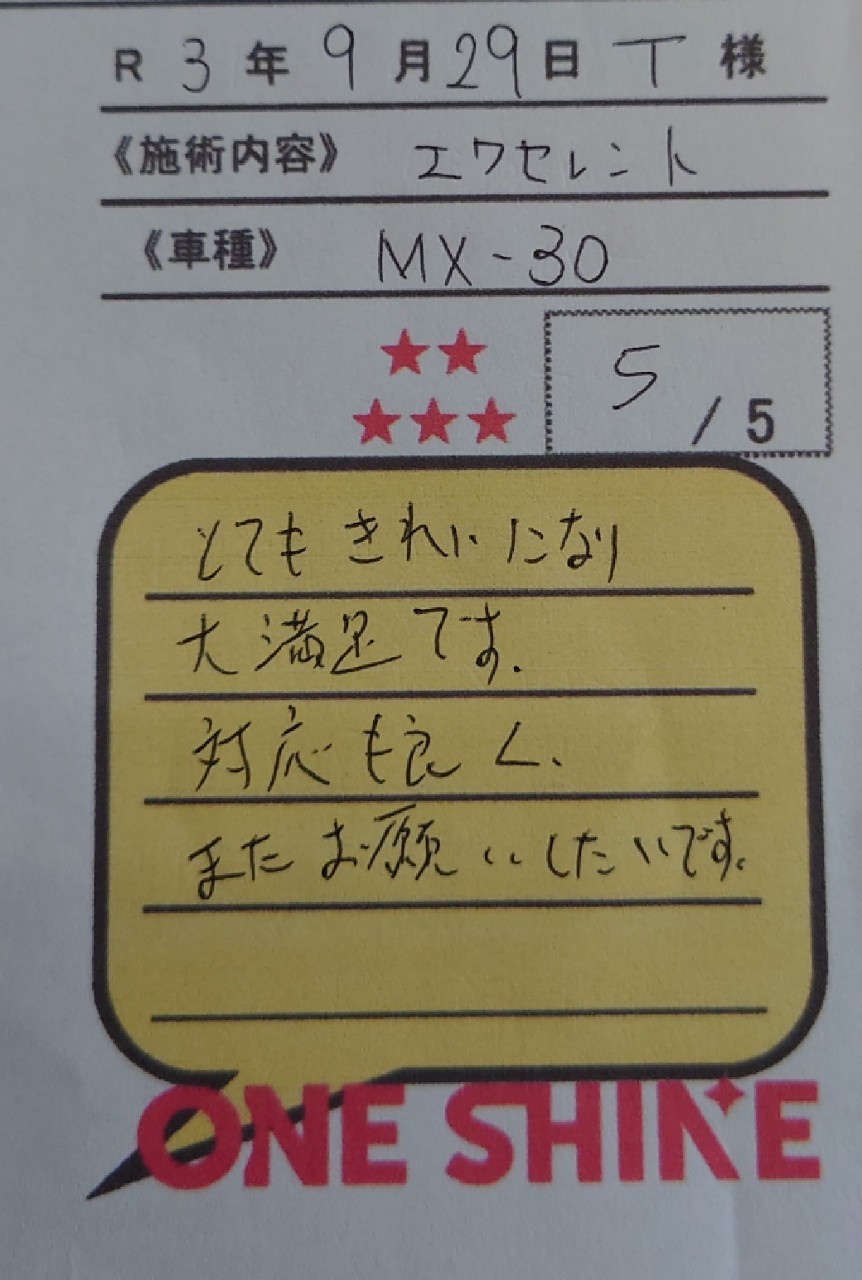 R 3年 9月29日 T 様
《施術内容》 エクセレント
《車種》 MX-30
★★
★★★ 5/5
とてもきれいになり
大満足です.
対応も良く、
またお願いしたいです。
ONE SHINE